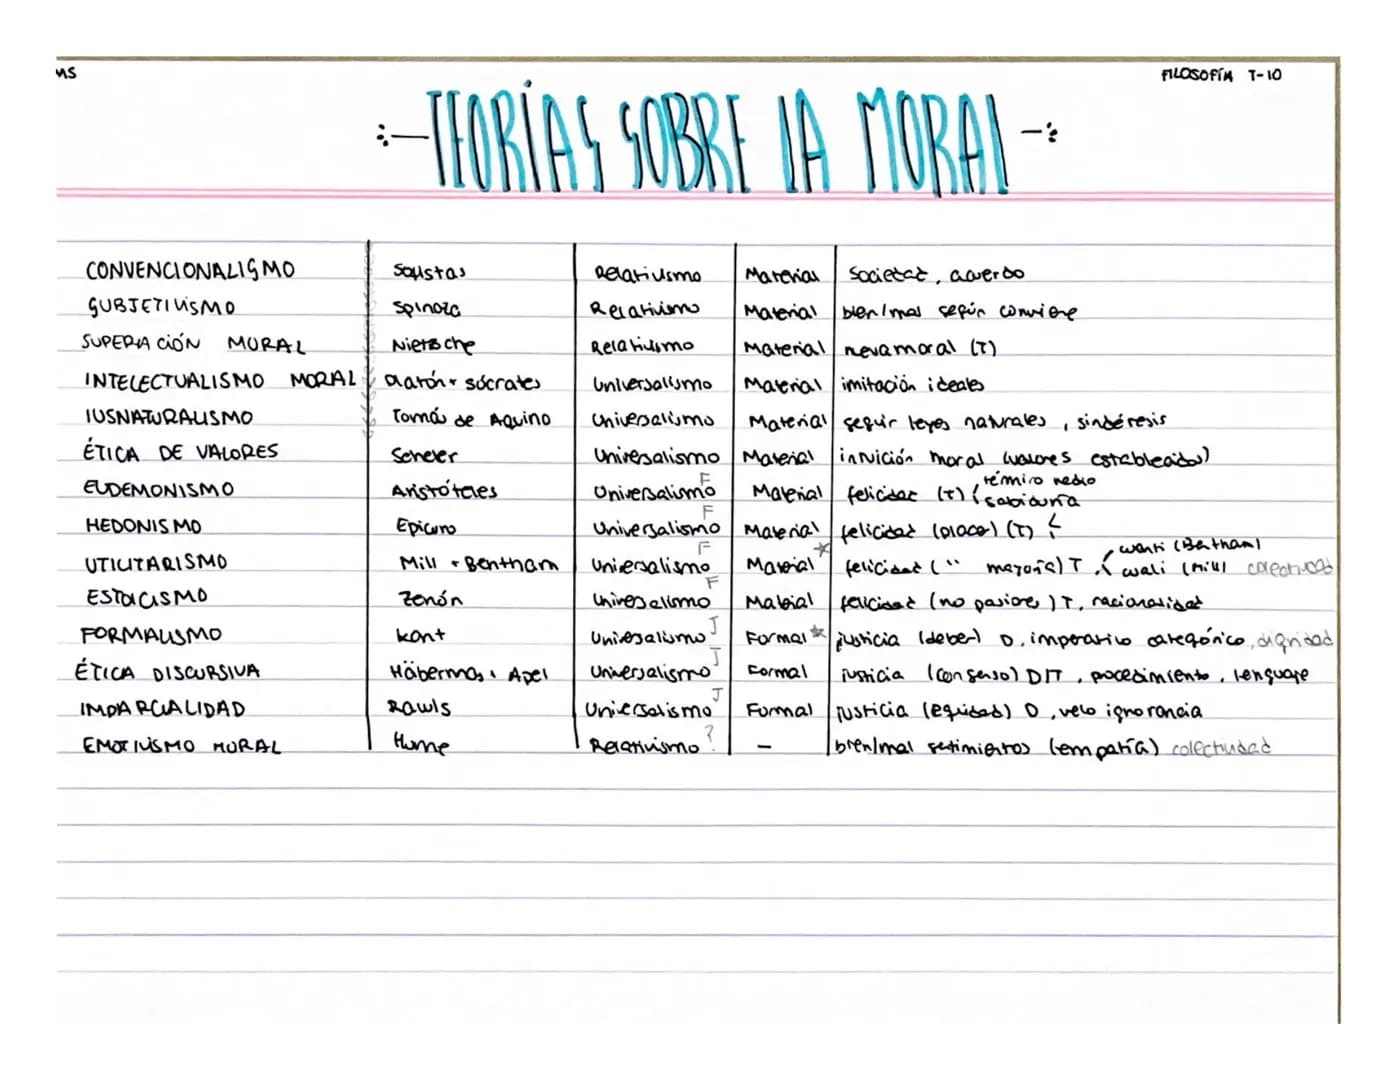 MS
FILOSOFÍA T-10
TEORÍAS SOBRE LA MORAL
CONVENCIONALISMO Sofistas Relativismo Material Societat, acuerdo
SUBJETIVISMO Spinoza Relativismo Material bien/mal según conviene
SUPERACIÓN MORAL Nietzsche Relativismo Material nova moral (T)
INTELECTUALISMO MORAL Platón + sócrates Universalismo Material imitación ideales
IUSNATURALISMO Tomás de Aquino Universalismo Material seguir leyes naturales, sindéresis
ÉTICA DE VALORES Scheler Universalismo Material intuición moral (valores establecidos)
EUDEMONISMO Aristóteles Universalismo F Material felicidad (T) término medio
sabiduría
HEDONISMO Epicuro Universalismo F Material felicidad (placer) (T)
UTILITARISMO Mill + Bentham Universalismo F Material felicidad (" mayoría) T wanti (Bentham)
wali (Mill) colectividad
ESTOICISMO Zenón Universalismo F Material felicidad (no pasiones) T, racionalidad
FORMALISMO Kant Universalismo J Formal justicia (deber) D, imperativo categórico, dignidad
ÉTICA DISCURSIVA Häbermas, Apel Universalismo J Formal justicia (consenso) D/T, procedimiento, lenguaje
IMPARCIALIDAD Rawls Universalismo J Formal justicia (equidad) D, velo ignorancia
EMOTIVISMO MORAL Hume Relativismo ? - bien/mal setimientos (empatía) colectividad